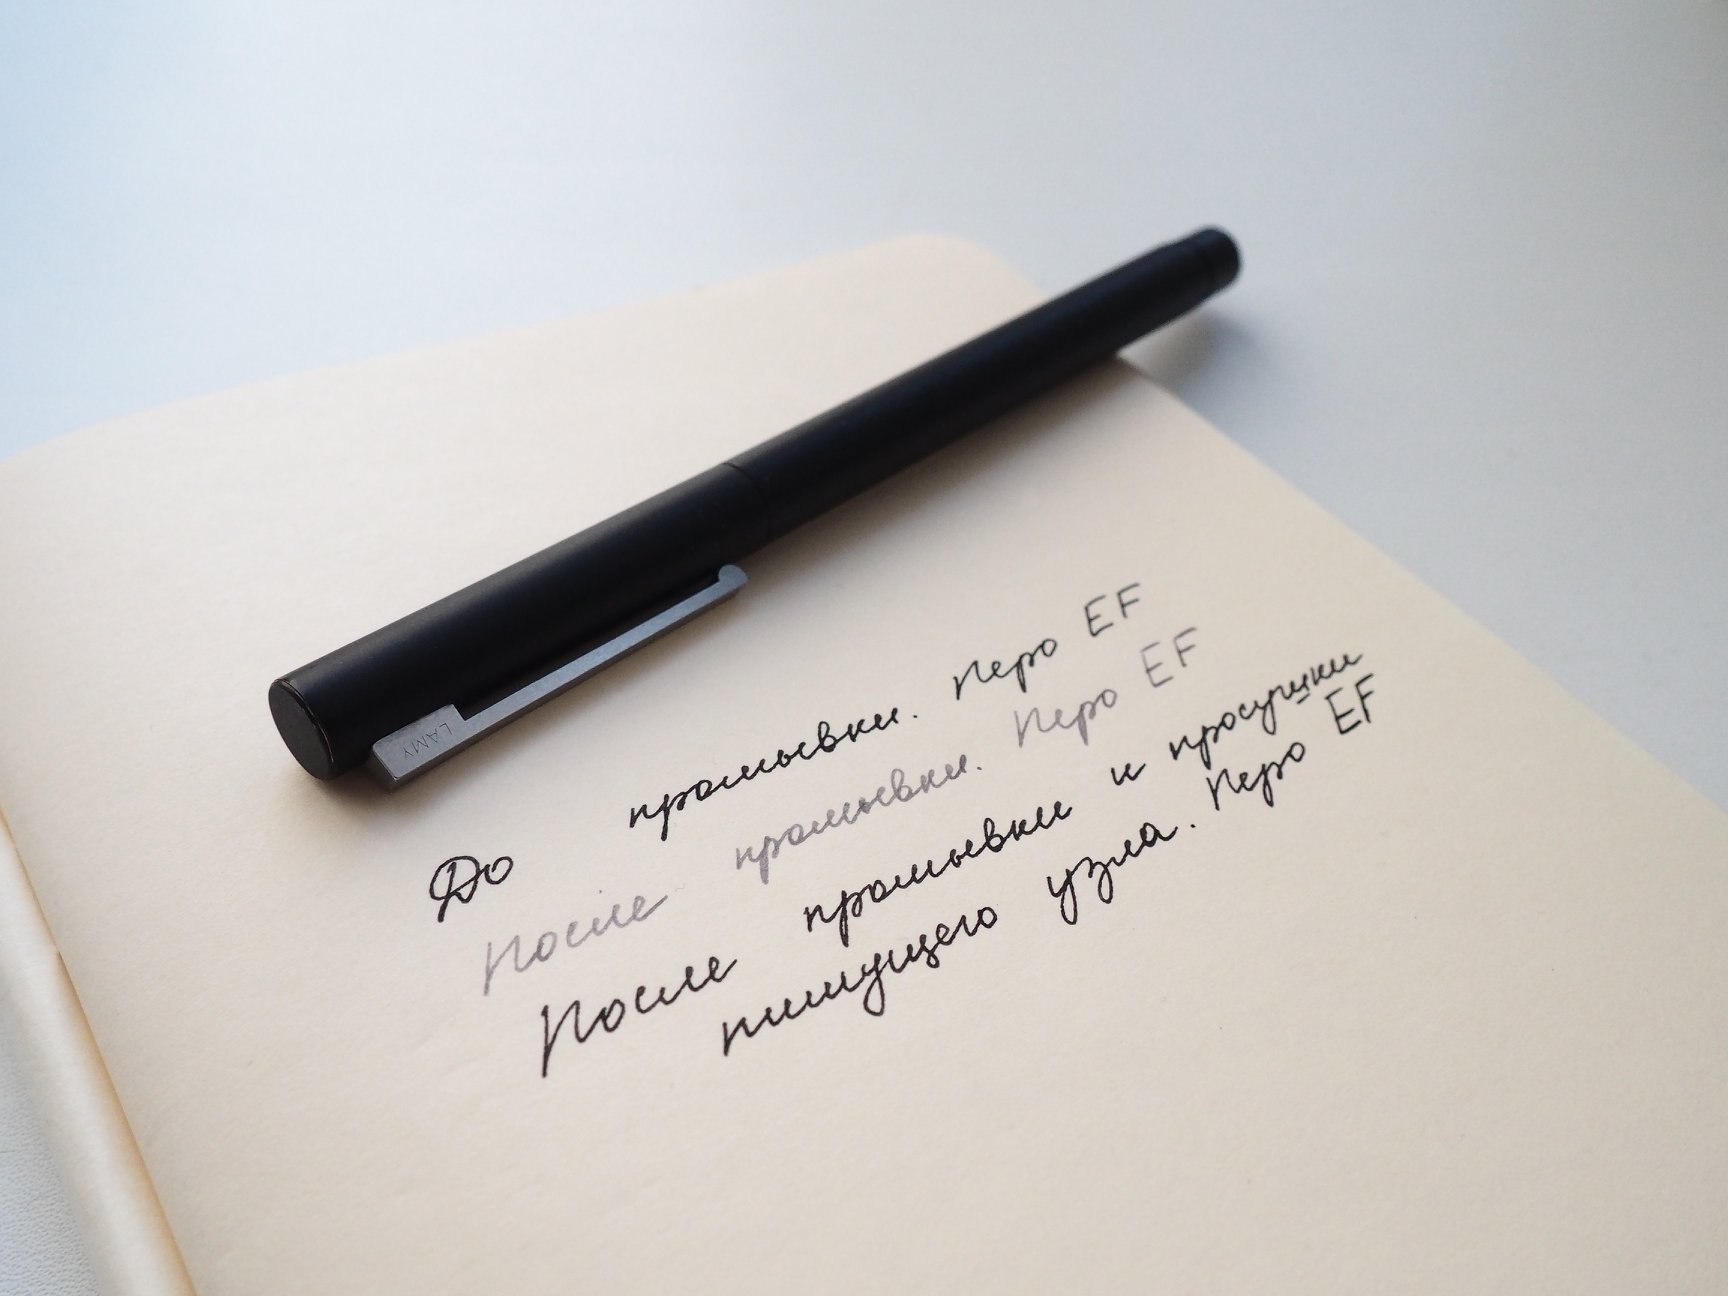 LAMY
До промывки. Перо EF
После промывки. Перо EF
После промывки и просушки
пишущего узла. Перо EF